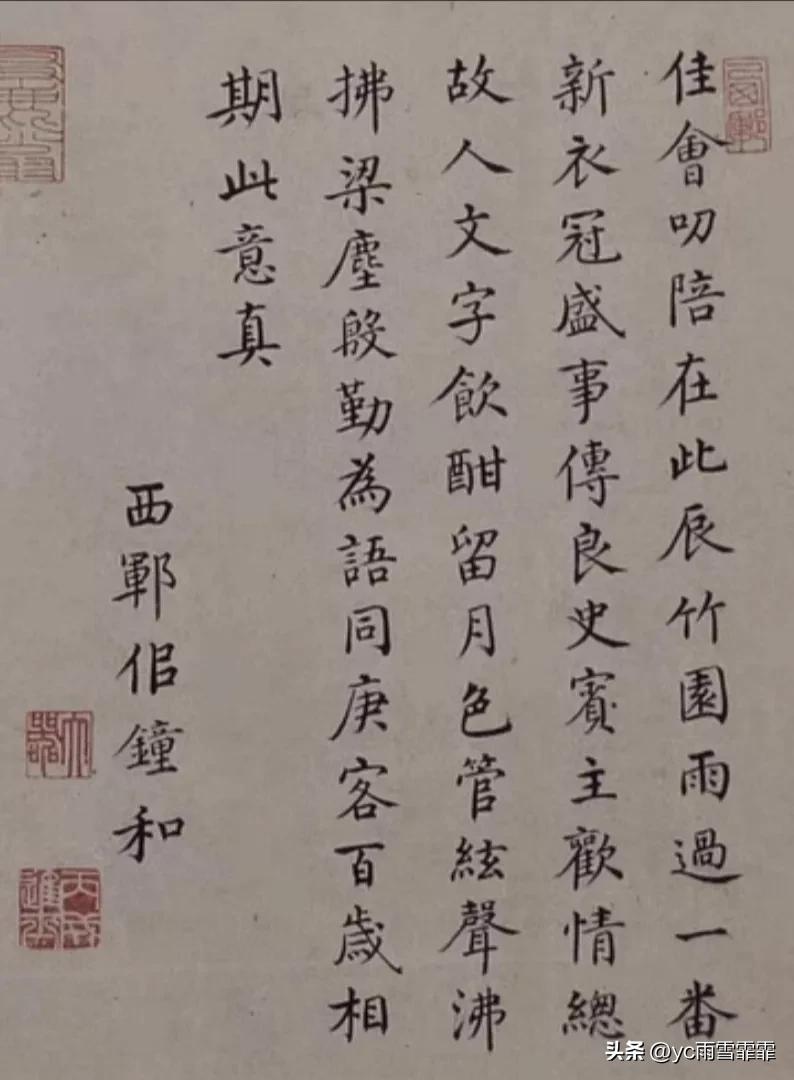 佳會叨陪在此辰竹園雨過一番
新衣冠盛事傳良史賓主歡情總
故人文字飲酣留月色管絃聲沸
拂梁塵殷勤為語同庚客百歲相
期此意真
西鄆侶鐘和
头条 @yc雨雪霏霏